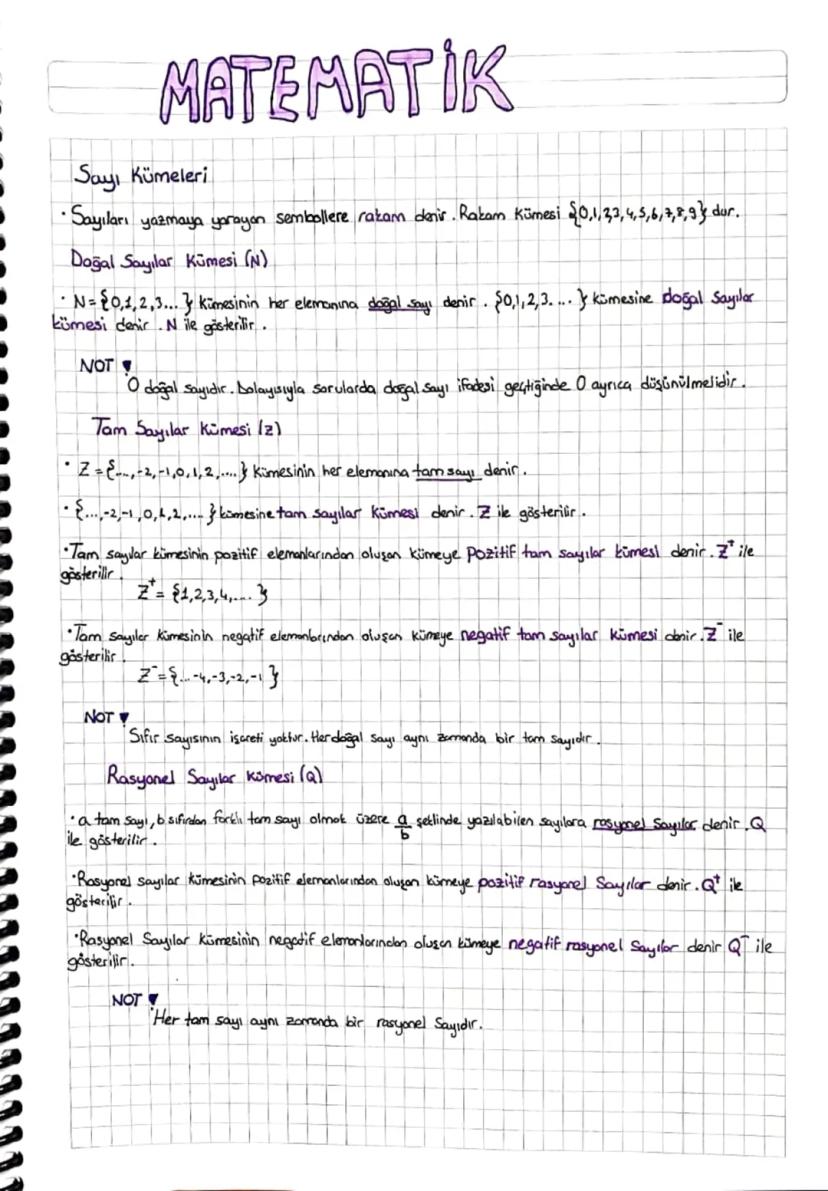 MATEMATİK
Sayı Kümeleri
• Sayıları yazmaya yarayan sembollere rakam denir. Rakam Kümesi {0,1,2,3,4,5,6,7,8,9} dur.
Doğal Sayılar Kümesi (N)
• N={0,1,2,3...} kümesinin her elemanına doğal sayı denir. {0,1,2,3....} kümesine doğal sayılar
kümesi denir. N ile gösterilir.
NOT
0 doğal sayıdır. Dolayısıyla sorularda doğal sayı ifadesi geçtiğinde 0 ayrıca düşünülmelidir.
Tam Sayılar Kümesi (Z)
• Z={...,-2,-1,0,1,2,....} kümesinin her elemanına tam sayı denir.
• {...,-2,-1,0,1,2,....} kümesine tam sayılar kümesi denir. Z ile gösterilir.
• Tam sayılar kümesinin pozitif elemanlarından oluşan kümeye Pozitif tam sayılar kümesi denir. Z⁺ ile
gösterilir.
Z⁺ = {1,2,3,4,....}
• Tam sayılar kümesinin negatif elemanlarından oluşan kümeye negatif tam sayılar kümesi denir. Z⁻ ile
gösterilir.
Z⁻={...-4,-3,-2,-1}
NOT
Sıfır sayısının işareti yoktur. Her doğal sayı aynı zamanda bir tam sayıdır.
Rasyonel Sayılar Kümesi (Q)
• a tam sayı, b sıfırdan farklı tam sayı olmak üzere a/b şeklinde yazılabilen sayılara rasyonel sayılar denir. Q
ile gösterilir.
• Rasyonel sayılar kümesinin pozitif elemanlarından oluşan kümeye pozitif rasyonel Sayılar denir. Q⁺ ile
gösterilir.
• Rasyonel Sayılar kümesinin negatif elemanlarından oluşan kümeye negatif rasyonel Sayılar denir Q⁻ ile
gösterilir.
NOT
Her tam sayı aynı zamanda bir rasyonel Sayıdır.